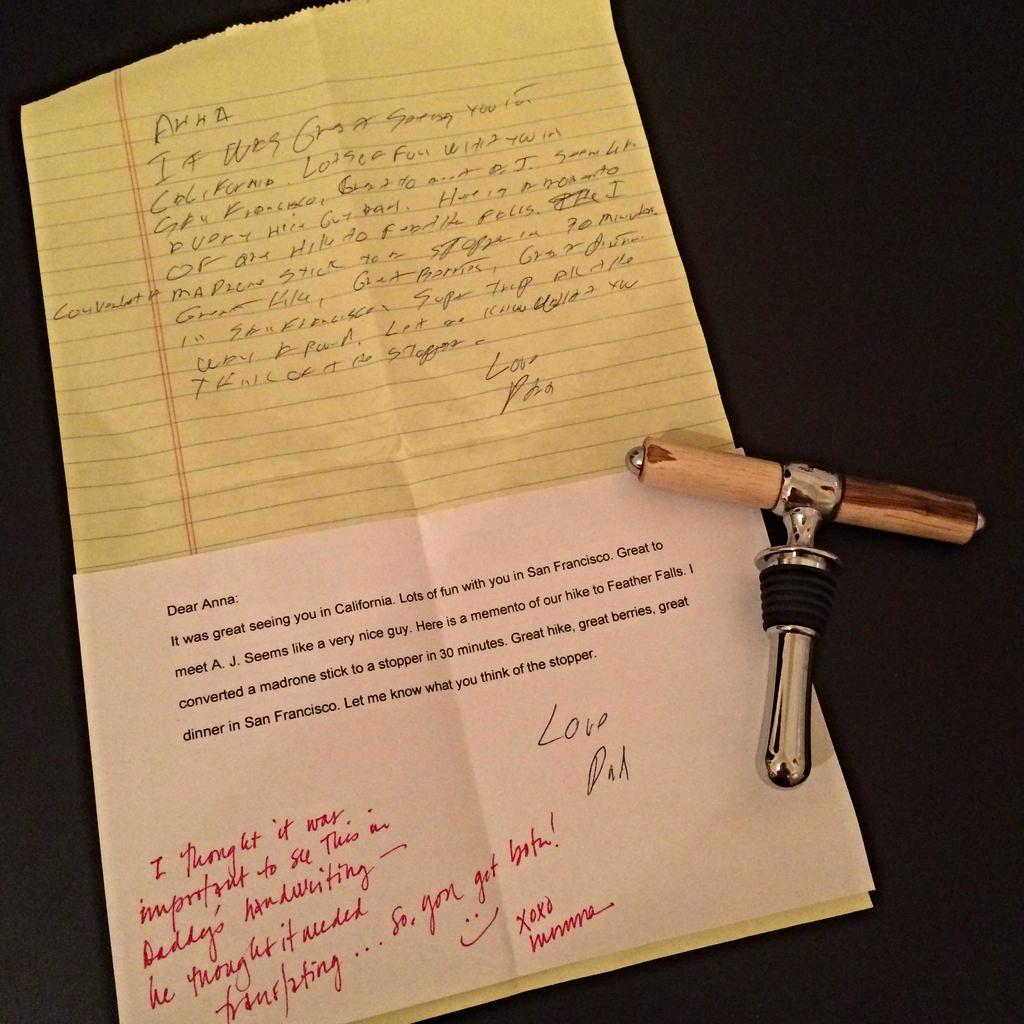 ANNA
It was Great Seeing you in
California. Lots of Fun with you in
San Francisco, Great to meet A. J. Seems like
a very nice Guy. Here is a memento
OF our Hike to Feather Falls. I
converted a madrone stick to a stopper in 30 minutes.
Great Hike, Great Berries, Great Dinner
in San Francisco. Super Trip all the
way around. Let me know what you
think of the stopper.
Love
Dad
Dear Anna:
It was great seeing you in California. Lots of fun with you in San Francisco. Great to
meet A. J. Seems like a very nice guy. Here is a memento of our hike to Feather Falls. I
converted a madrone stick to a stopper in 30 minutes. Great hike, great berries, great
dinner in San Francisco. Let me know what you think of the stopper.
Love
Dad
I thought it was
important to see this in
Daddy's handwriting —
he thought it needed
... So, you get both!
xoxo
mumma